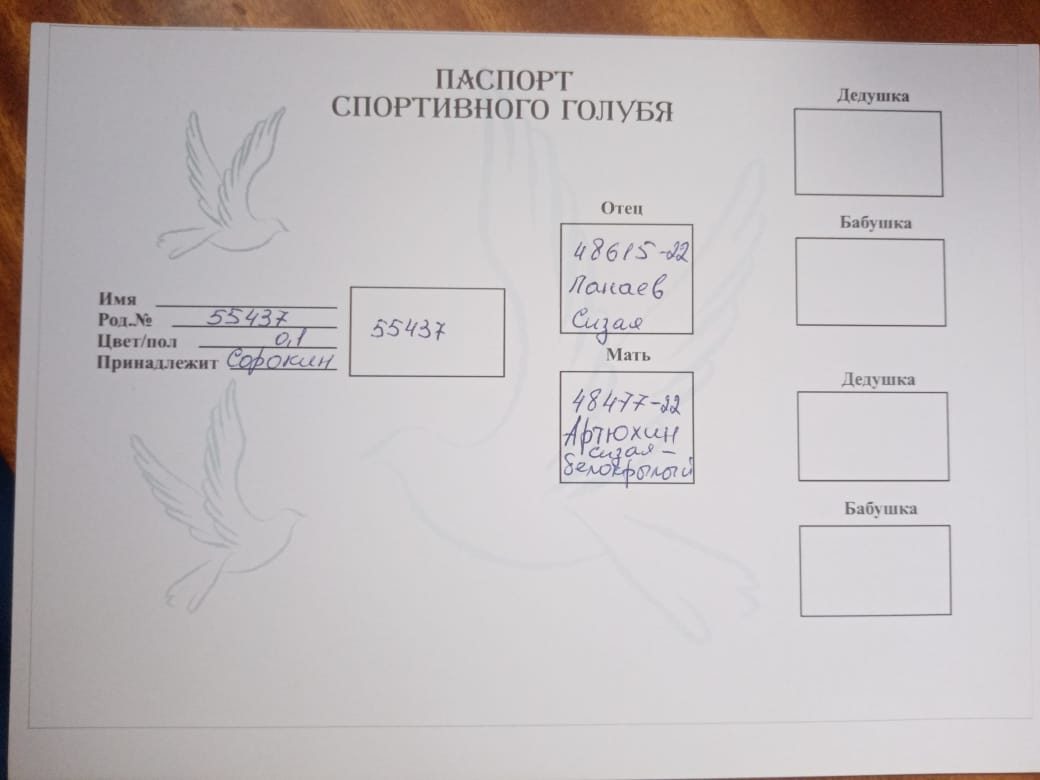 ПАСПОРТ
СПОРТИВНОГО ГОЛУБЯ
Имя
Род.№ 55437
Цвет/пол 0,1
Принадлежит Сорокин
55437
Отец
48615-22
Панаев
Сизая
Мать
48477-22
Артюхин
сизая-
белокрылый
Дедушка
Бабушка
Дедушка
Бабушка